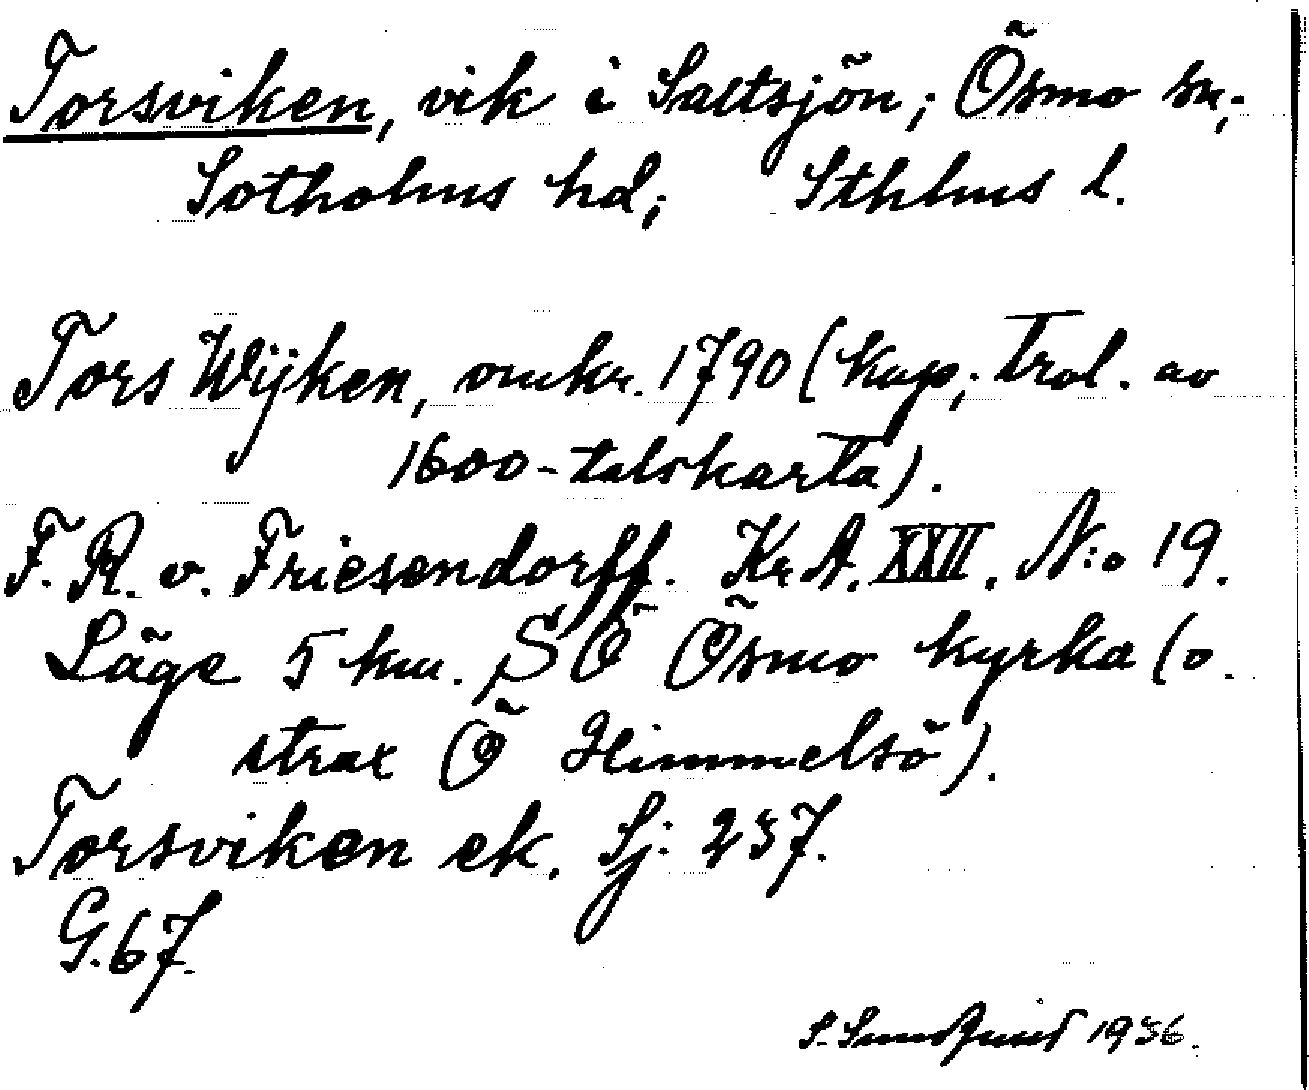 Torsviken, vik i Saltsjön; Ösmo sn;
Sotholms hd; Sthlms l.
Tors Wijken, omkr. 1790 (kop; trol. av
1600-talskarta).
F. R. v. Friesendorff. Kr A. XXII. N:o 19.
Läge 5 km. SÖ Ösmo kyrka (o.
strax Ö Himmelsö).
Torsviken ek. Sj: 237.
G. 67.
S. 1936.